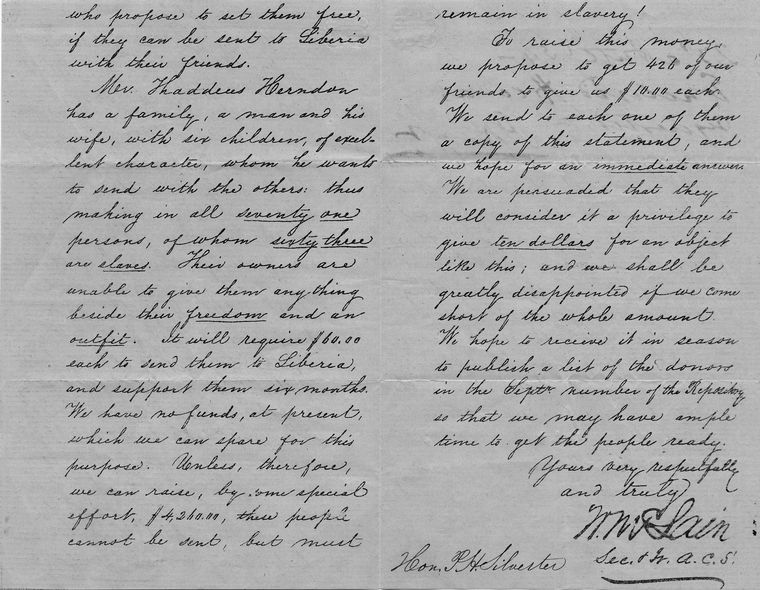 who propose to set them free,
if they can be sent to Liberia
with their friends.
Mr. Thaddeus Herndon
has a family, a man and his
wife, with six children, of excel-
lent character, whom he wants
to send with the others: thus
making in all seventy one
persons, of whom sixty three
are slaves. Their owners are
unable to give them anything
beside their freedom and an
outfit. It will require $60.00
each to send them to Liberia,
and support them six months.
We have no funds, at present,
which we can spare for this
purpose. Unless, therefore,
we can raise, by some special
effort, $4,260.00, these people
cannot be sent, but must
remain in slavery!
To raise this money,
we propose to get 426 of our
friends to give us $10.00 each.
We send to each one of them
a copy of this statement, and
we hope for an immediate answer.
We are persuaded that they
will consider it a privilege to
give ten dollars for an object
like this; and we shall be
greatly disappointed if we come
short of the whole amount.
We hope to receive it in season
to publish a list of the donors
in the Septr. number of the Repository
so that we may have ample
time to get the people ready.
Yours very respectfully
and truly
W. McLain
Sec. & Tr. A.C.S.
Hon. P.H. Silvester